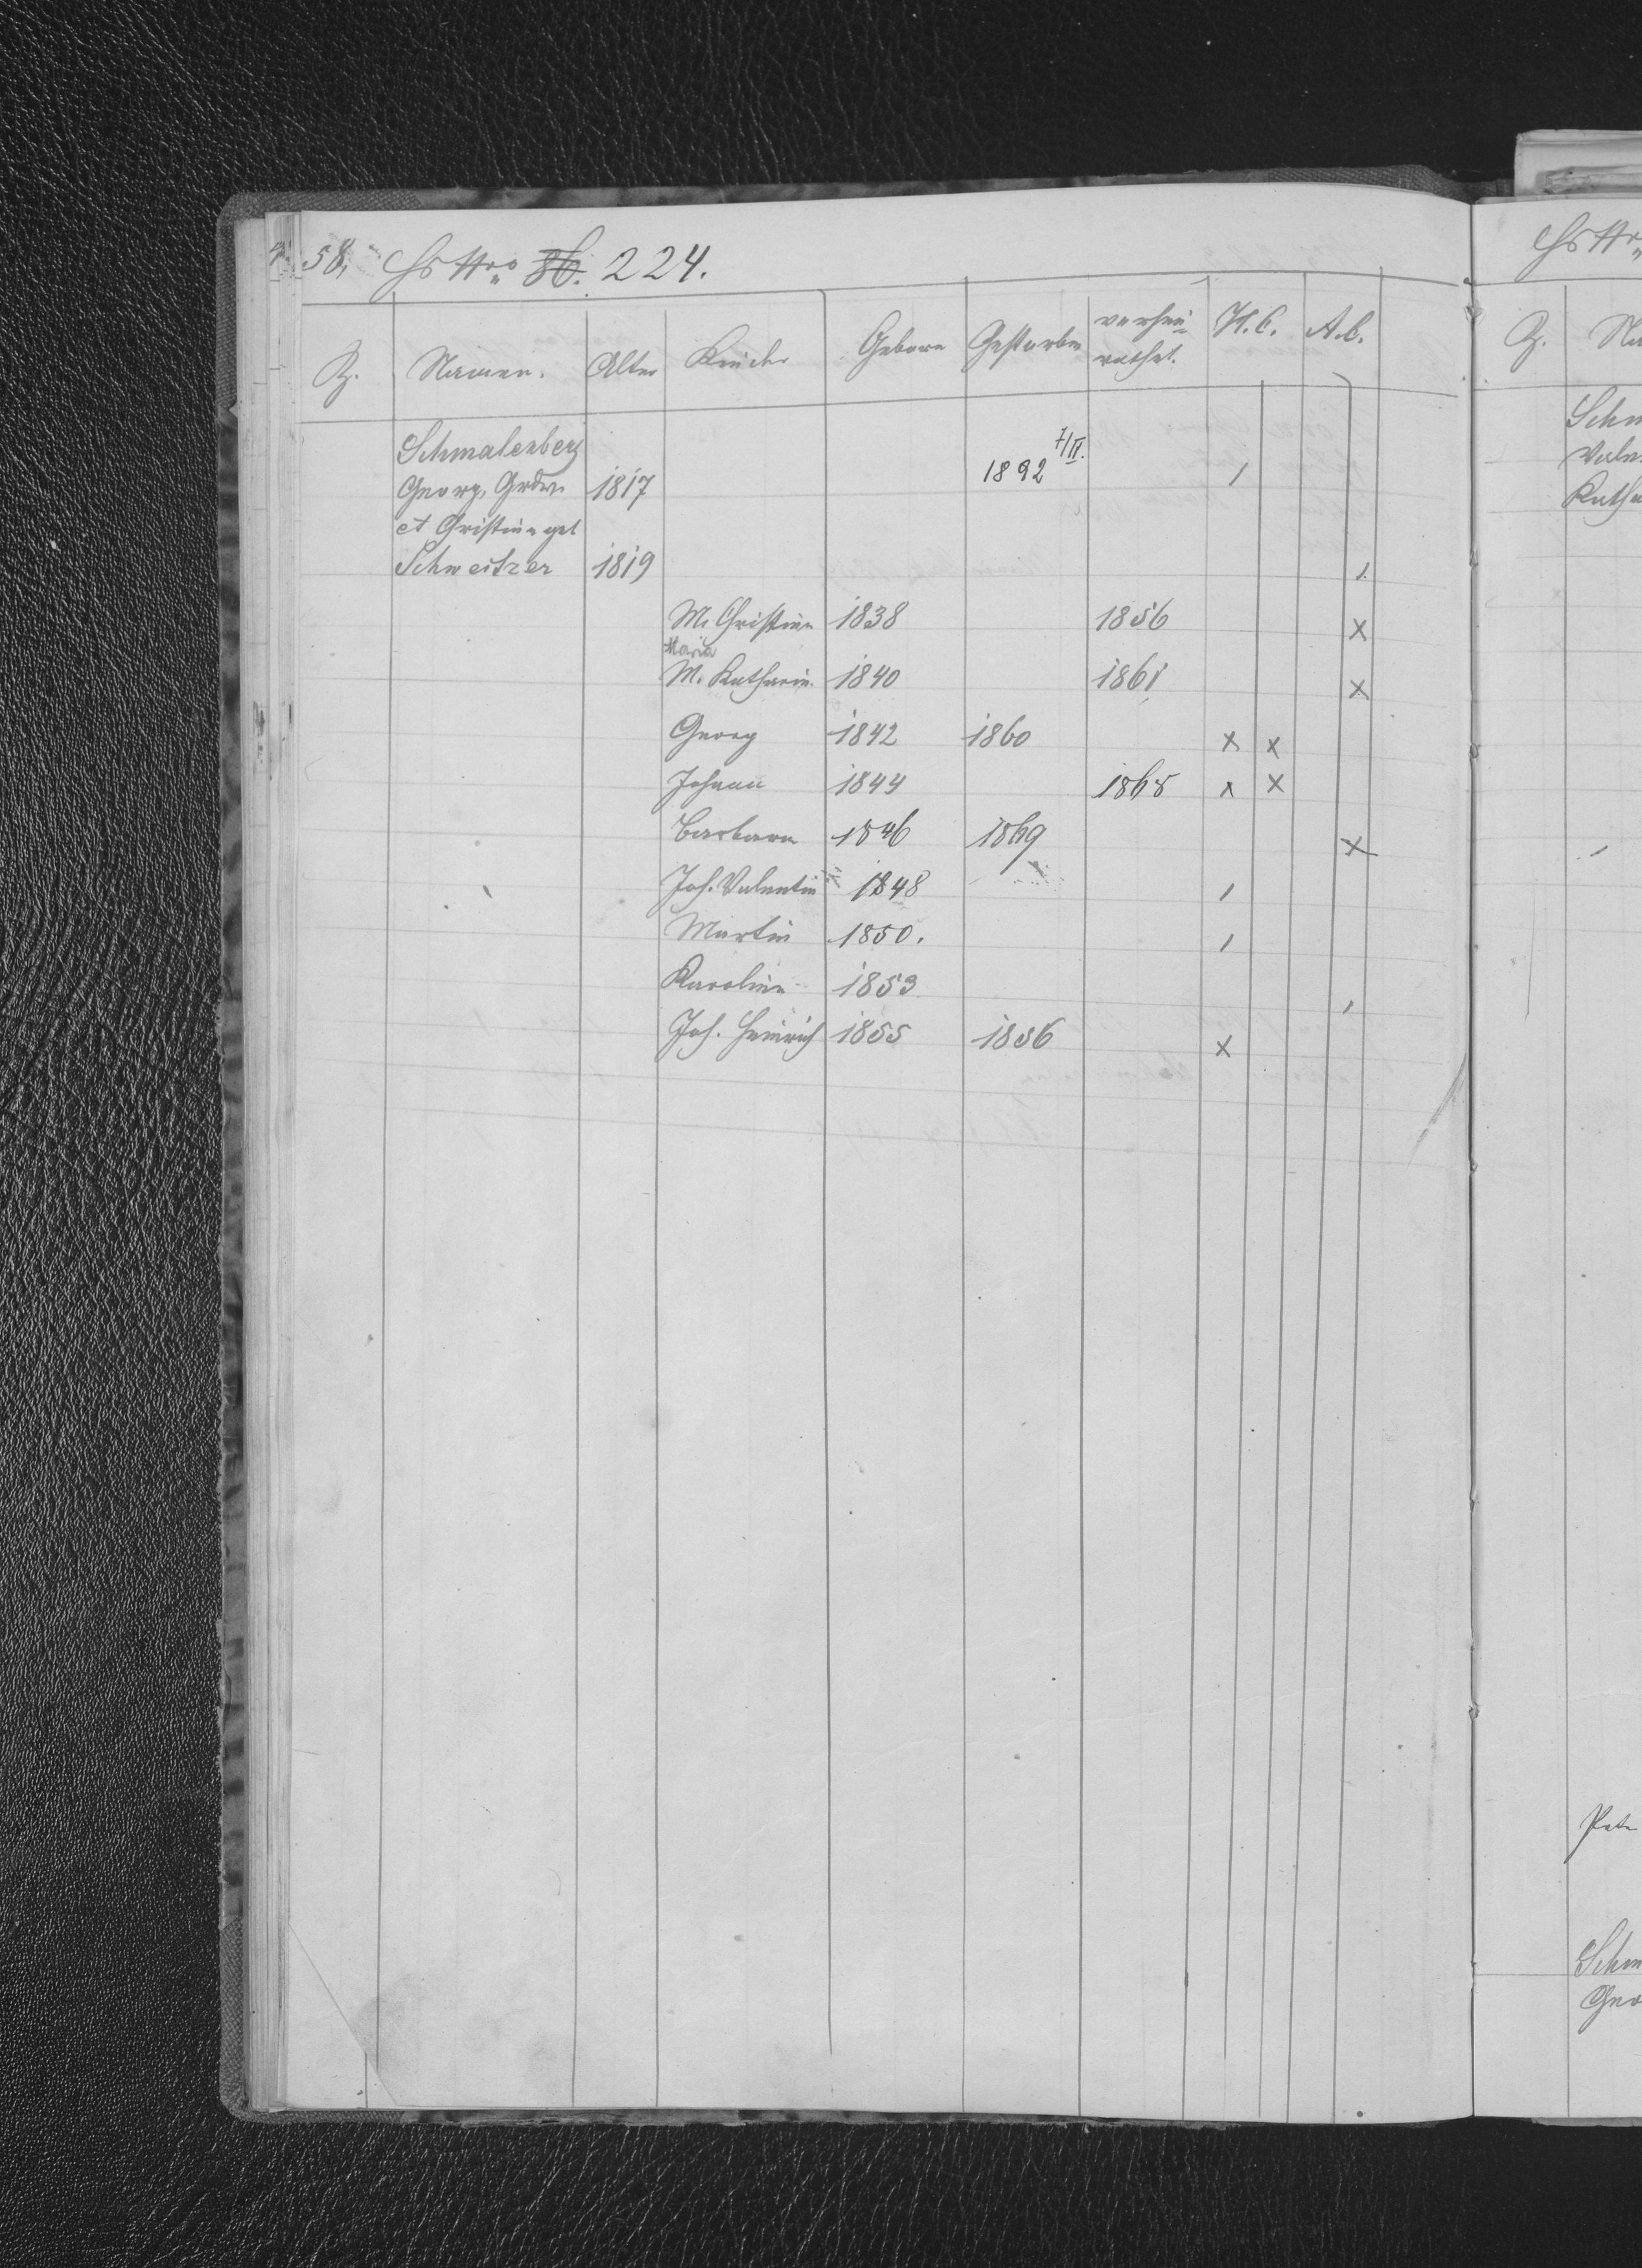 58, Hs Nro 86. 224.
Z. Namen. Alter Kinder Geboren Gestorben verhei= H. C. A. C.
rathet.
Schmalenberg
Georg, 1817 1892 7/II. /
et Christina geb
Schweitzer 1819 /.
M. Christina 1838 1856 x
Maria
M. Katharin. 1840 1861 x
Georg 1842 1860 x x
Johann 1844 1868 x x
Barbara 1846 1869 x
Joh. Valentin 1848 /
Martin 1850. /
Karolina 1853 /
Joh. Heinrich 1855 1856 x
Hs Nro
Z. Na
Schm
Valen
Katha
Schm
Geo